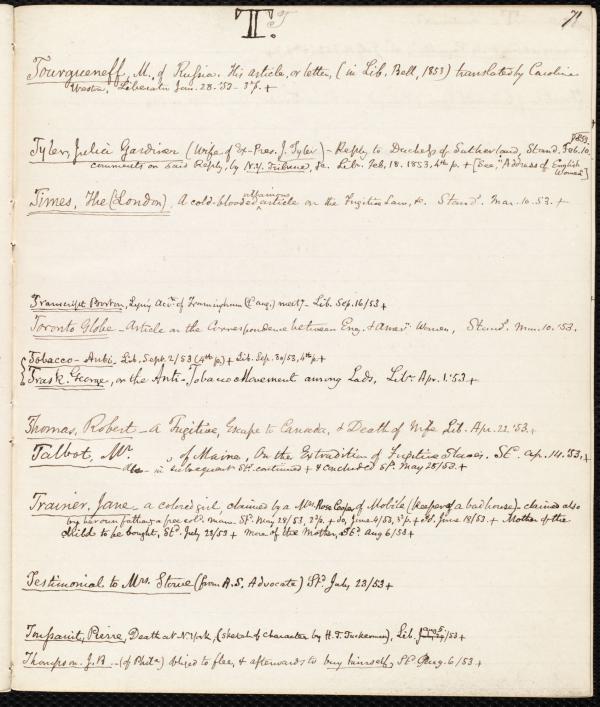 T.
71
Tourgueneff, M. of Russia. His article, or letter, (in Lib. Bell, 1853) translated by Caroline
Weston, Liberator Jan. 28. '53 - 3d p. +
1853
Tyler, Julia Gardiner (Wife of Ex-Pres. J. Tyler) - Reply to Duchess of Sutherland, Stand. Feb. 10.
comments on said Reply, by N.Y. Tribune, &c. Libr. Feb. 18. 1853. 4th p. + [See, "Address of English
Women"]
Times, The (London), A cold-blooded villainous article on the Fugitive Law, &c. Standd. Mar. 10. 53. +
Transcript Boston, Lying Acct. of Framingham (1st aug.) meetg - Lib. Sep. 16/53 +
Toronto Globe - Article on the Correspondence between Eng. & Amern. Women, Standd. Mar. 10. '53.
Tobacco - Anti - Lib. Sept. 2/53 (4th p.) + Lib. Sep. 30/53, 4th p. +
Trask. George, on the Anti-Tobacco Movement among Lads, Libr. Apr. 1. '53 +
Thomas, Robert - a Fugitive, Escape to Canada, & Death of Wife Lib. Apr. 22. '53. +
Talbot, Mr. , of Maine, On the Extradition of Fugitive Slaves. Sd. Ap. 14. '53. +
Also - in subsequent Sds. continued + & concluded Sd. May 28/53. +
Trainer, Jane - a colored girl, claimed by a Mrs. Rose Cooper of Mobile (keeper of a bad house) - claimed also
by her own father, a free cold. man. Sd. May 28/53, 2d p. + do, June 4/53, 3d p. + Sd. June 18/53 + Mother of the
child to be bought, Sd. July 23/53 + More of the Mother, Sd. Aug 6/53 +
Testimonial to Mrs. Stowe (from A.S. Advocate) Sd. July 23/53 +
Toussaint, Pierre, Death at N. York, (sketch of character by H. T. Tuckerman), Lib. Aug 5/53 +
Thompson. J. B. - (of Phila) obliged to flee, & afterwards to buy himself, Sd. Aug. 6/53 +